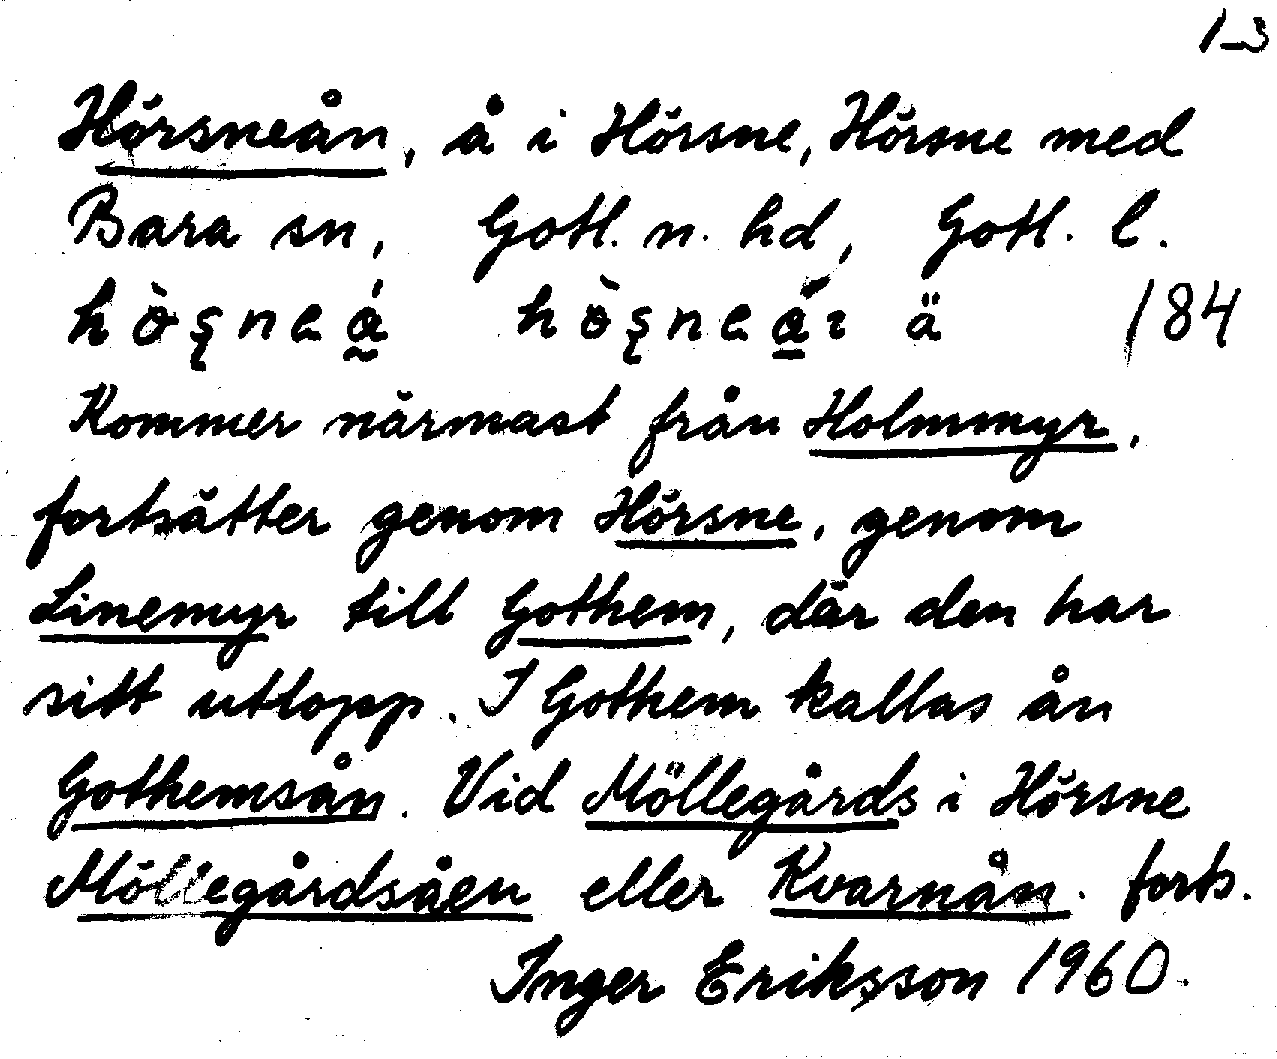 1-3
Hörsneån, å i Hörsne, Hörsne med
Bara sn, Gotl. n. hd, Gotl. l.
184
Kommer närmast från Holmmyr,
fortsätter genom Hörsne, genom
Linemyr till Gothem, där den har
sitt utlopp. I Gothem kallas ån
Gothemsån. Vid Möllegårds i Hörsne
Möllegårdsåen eller Kvarnån. forts.
Inger Eriksson 1960.